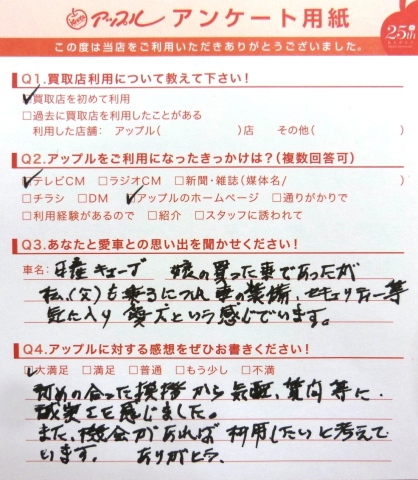 アップル アンケート用紙
この度は当店をご利用いただきありがとうございました。
25th
Q1.買取店利用について教えて下さい！
☑買取店を初めて利用
□過去に買取店を利用したことがある
利用した店舗： アップル（　）店 その他（　）
Q2.アップルをご利用になったきっかけは？（複数回答可）
☑テレビCM □ラジオCM □新聞・雑誌（媒体名/　）
□チラシ □DM ☑アップルのホームページ □通りがかりで
□利用経験があるので □紹介 □スタッフに誘われて
Q3.あなたと愛車との思い出を聞かせてください！
車名： 日産 キューブ 娘の買った車であったが
私(父)も乗るにつれ 車の装備、セキュリティー等
気に入り 愛犬という感じでいます。
Q4.アップルに対する感想をぜひお書きください！
☑大満足 □満足 □普通 □もう少し □不満
初めの合った挨拶から気配、質問等に
誠実さを感じました。
また、機会があれば 利用したいと考えて
います。 ありがとう。